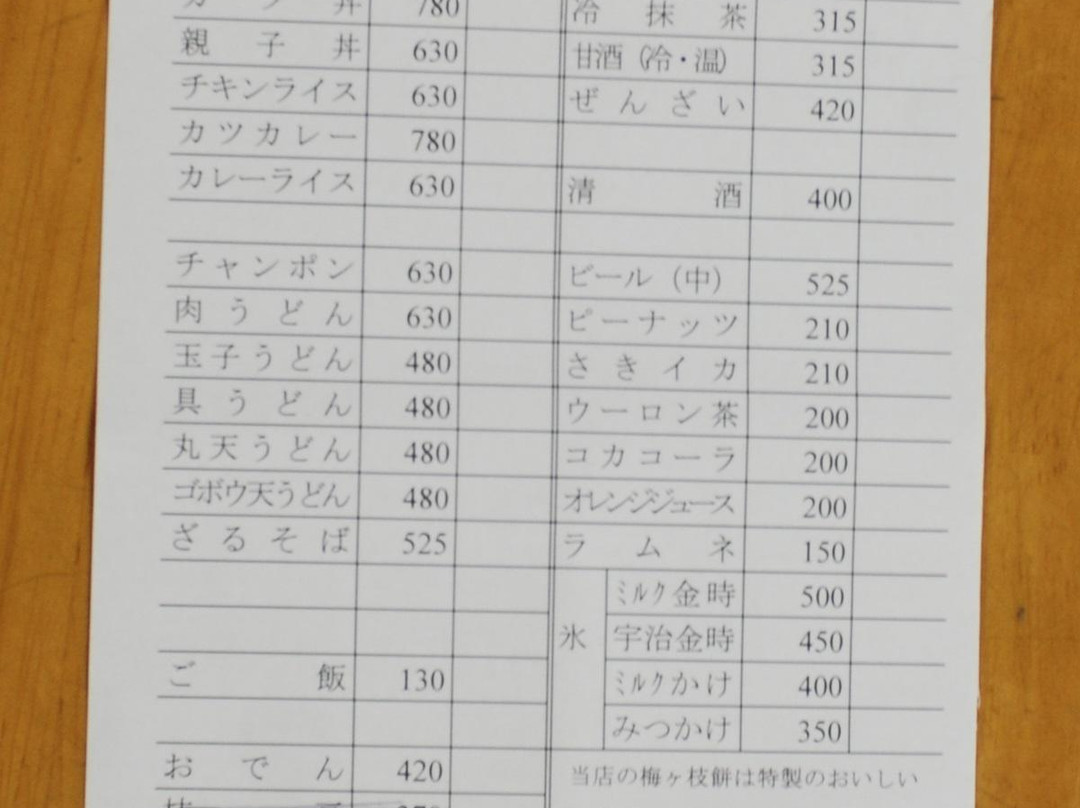 カツ丼 780
親子丼 630
チキンライス 630
カツカレー 780
カレーライス 630
チャンポン 630
肉うどん 630
玉子うどん 480
具うどん 480
丸天うどん 480
ゴボウ天うどん 480
ざるそば 525
ご飯 130
おでん 420
冷抹茶 315
甘酒（冷・温） 315
ぜんざい 420
清酒 400
ビール（中） 525
ピーナッツ 210
さきイカ 210
ウーロン茶 200
コカコーラ 200
オレンジジュース 200
ラムネ 150
氷
ﾐﾙｸ金時 500
宇治金時 450
ﾐﾙｸかけ 400
みつかけ 350
当店の梅ヶ枝餅は特製のおいしい